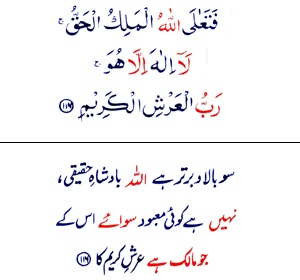 فَتَعٰلَى اللّٰهُ الْمَلِكُ الْحَقُّ ۚ
لَآ اِلٰهَ اِلَّا هُوَ ۚ
رَبُّ الْعَرْشِ الْكَرِيْمِ ﴿۱۱۶﴾
سو بالا و برتر ہے اللہ بادشاہِ حقیقی،
نہیں ہے کوئی معبود سوائے اس کے
جو مالک ہے عرشِ کریم کا ﴿۱۱۶﴾